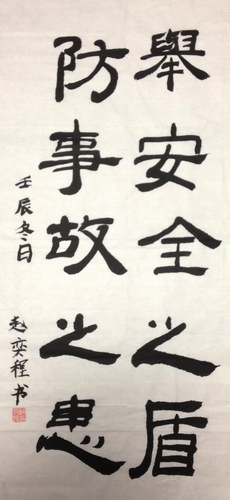 舉安全之盾
防事故之患
壬辰冬日
赵奕程书